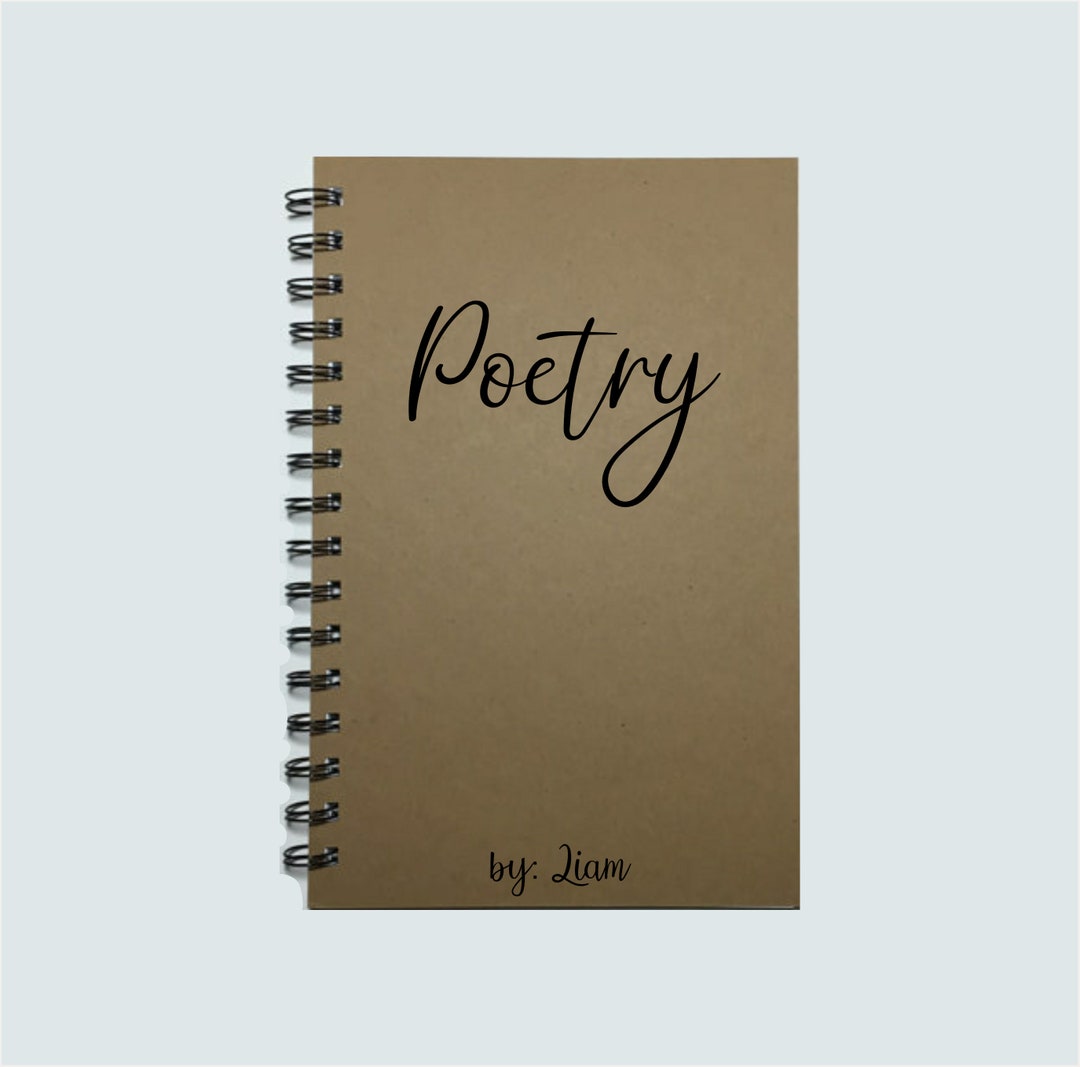 Poetry
by: Liam